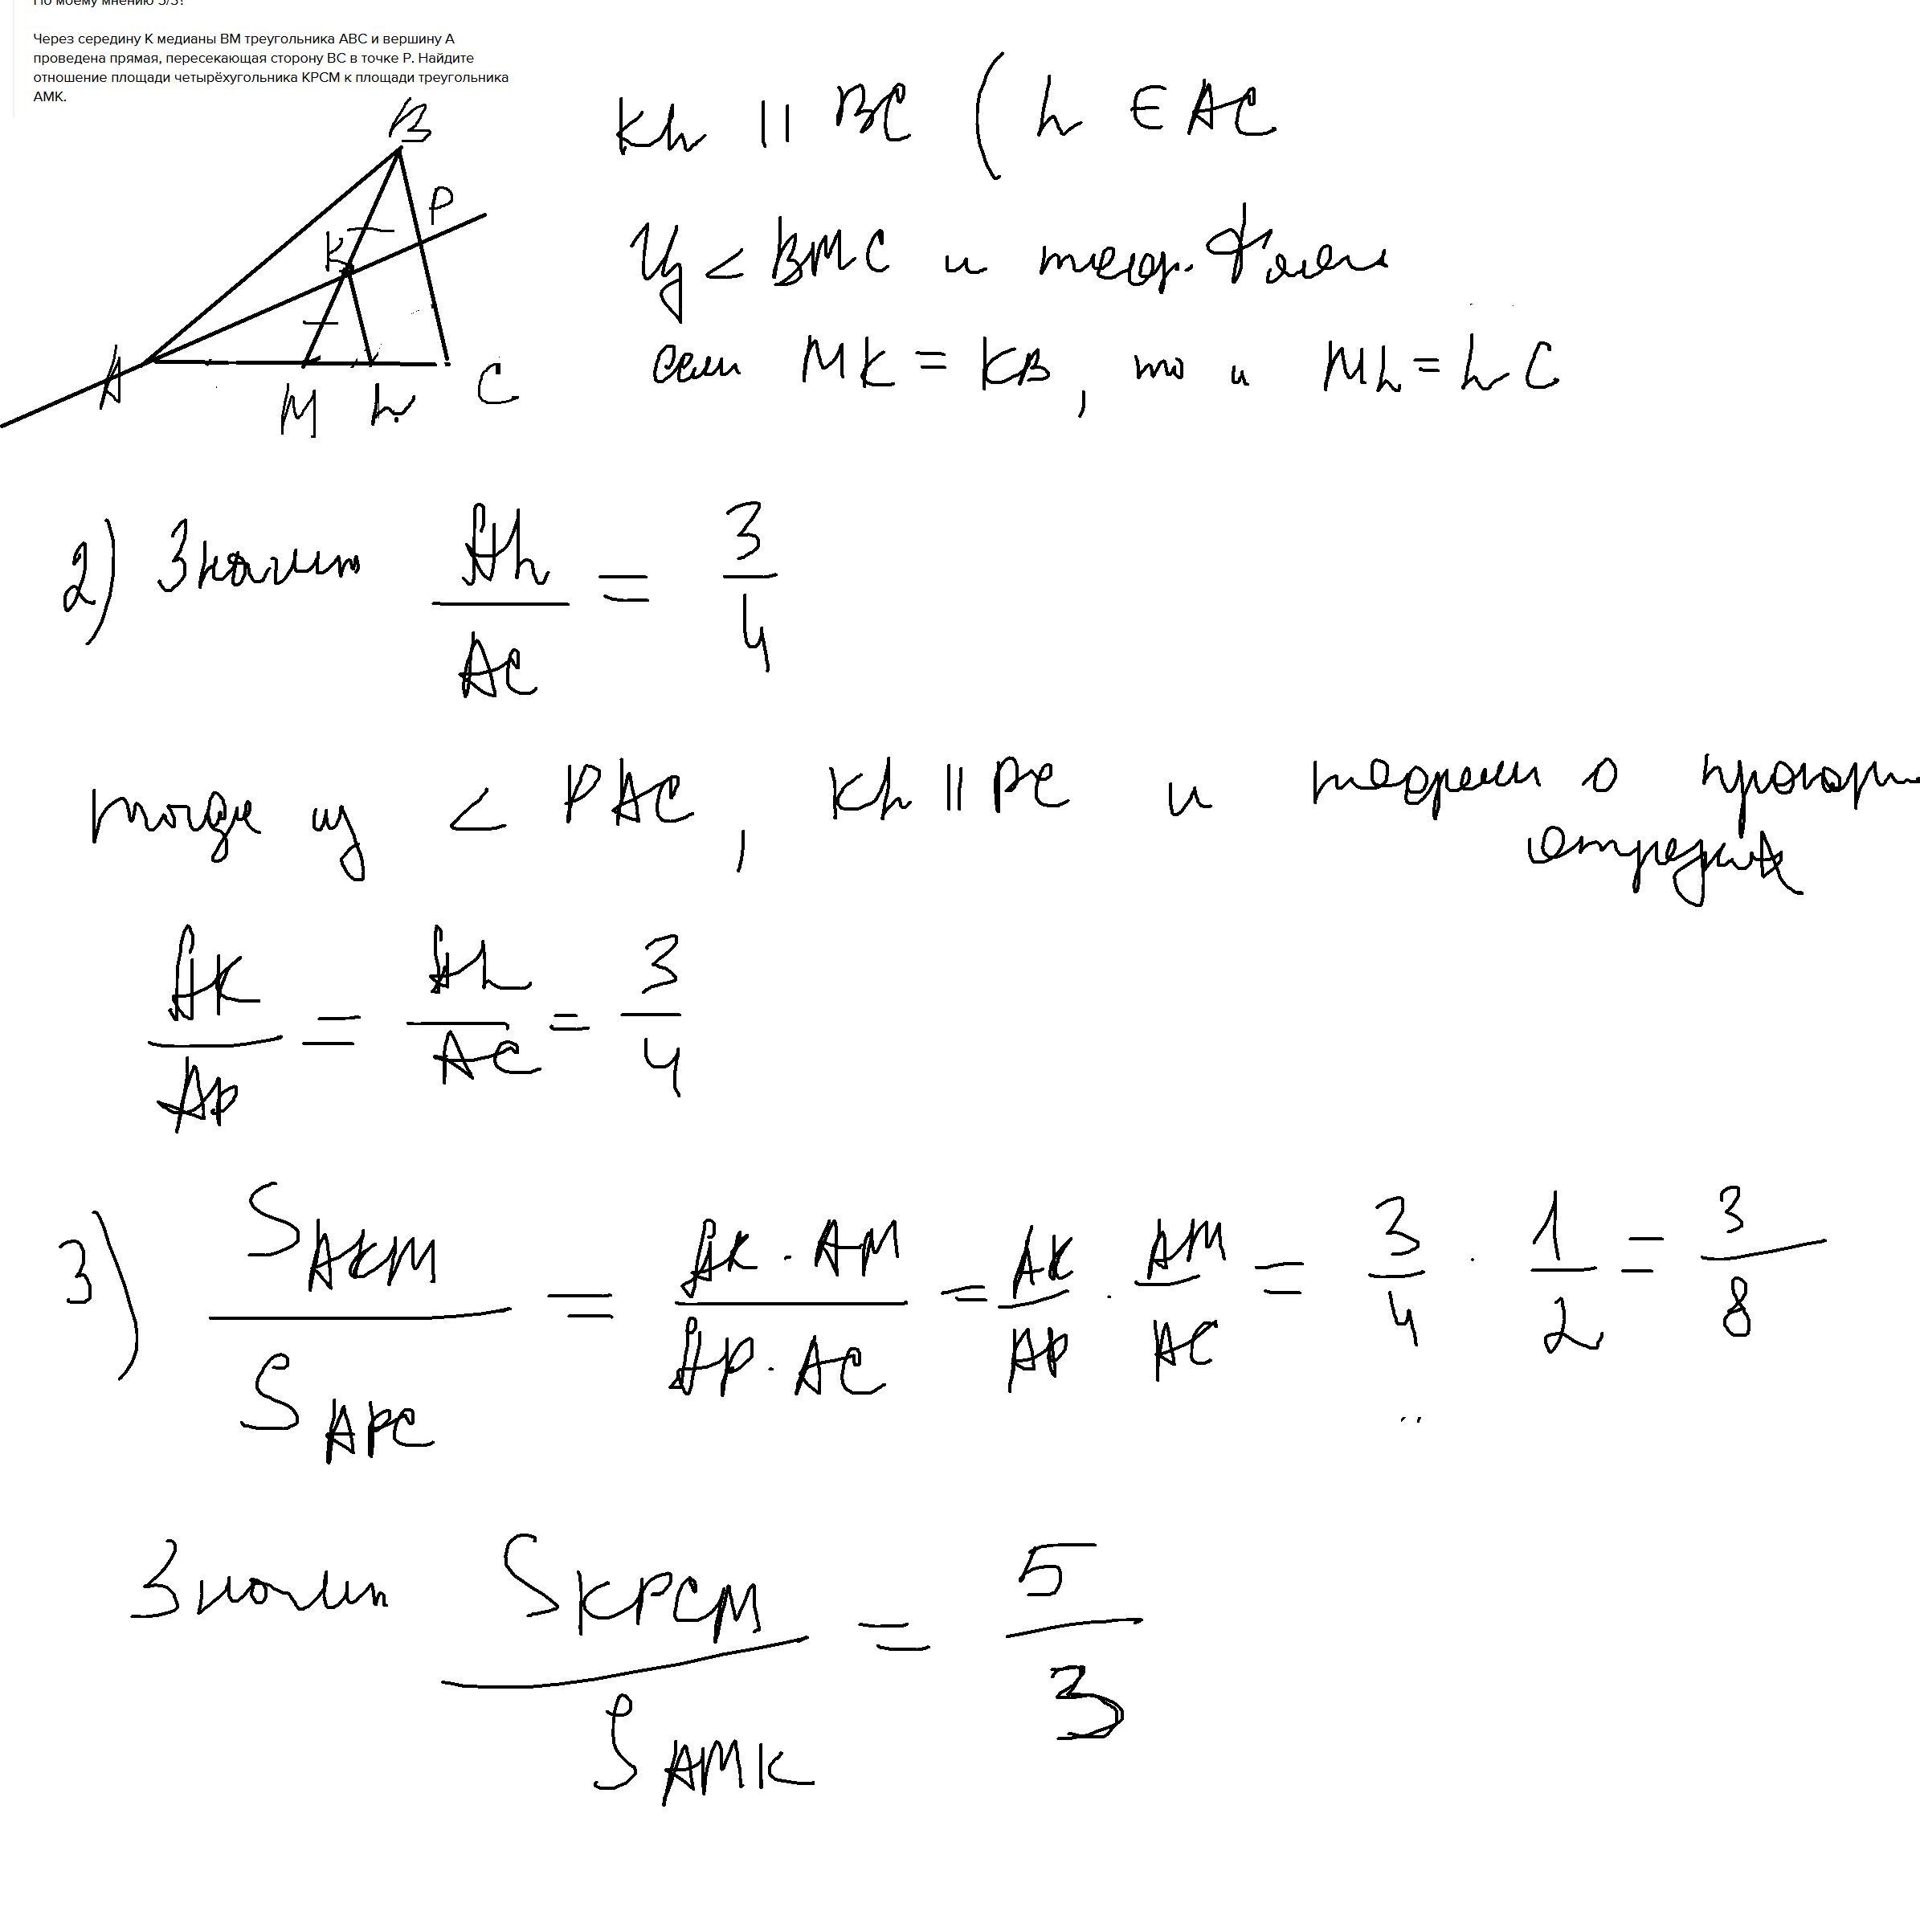 По моему мнению 5/3?
Через середину К медианы ВМ треугольника АВС и вершину А
проведена прямая, пересекающая сторону ВС в точке Р. Найдите
отношение площади четырёхугольника КРСМ к площади треугольника
АМК.
B
P
K
A
M
L
C
KL || BC ( L ∈ AC
Из < BMC и теор. Фалеса
если MK = KB, то и ML = LC
2) Значит AL/AC = 3/4
тогда из < PAC, KL || PC и теорем о пропорц
отрезках
AK/AP = AL/AC = 3/4
3) S AKM / S APC = AK · AM / AP · AC = AK/AP · AM/AC = 3/4 · 1/2 = 3/8
Значит S KPCM / S AMK = 5/3